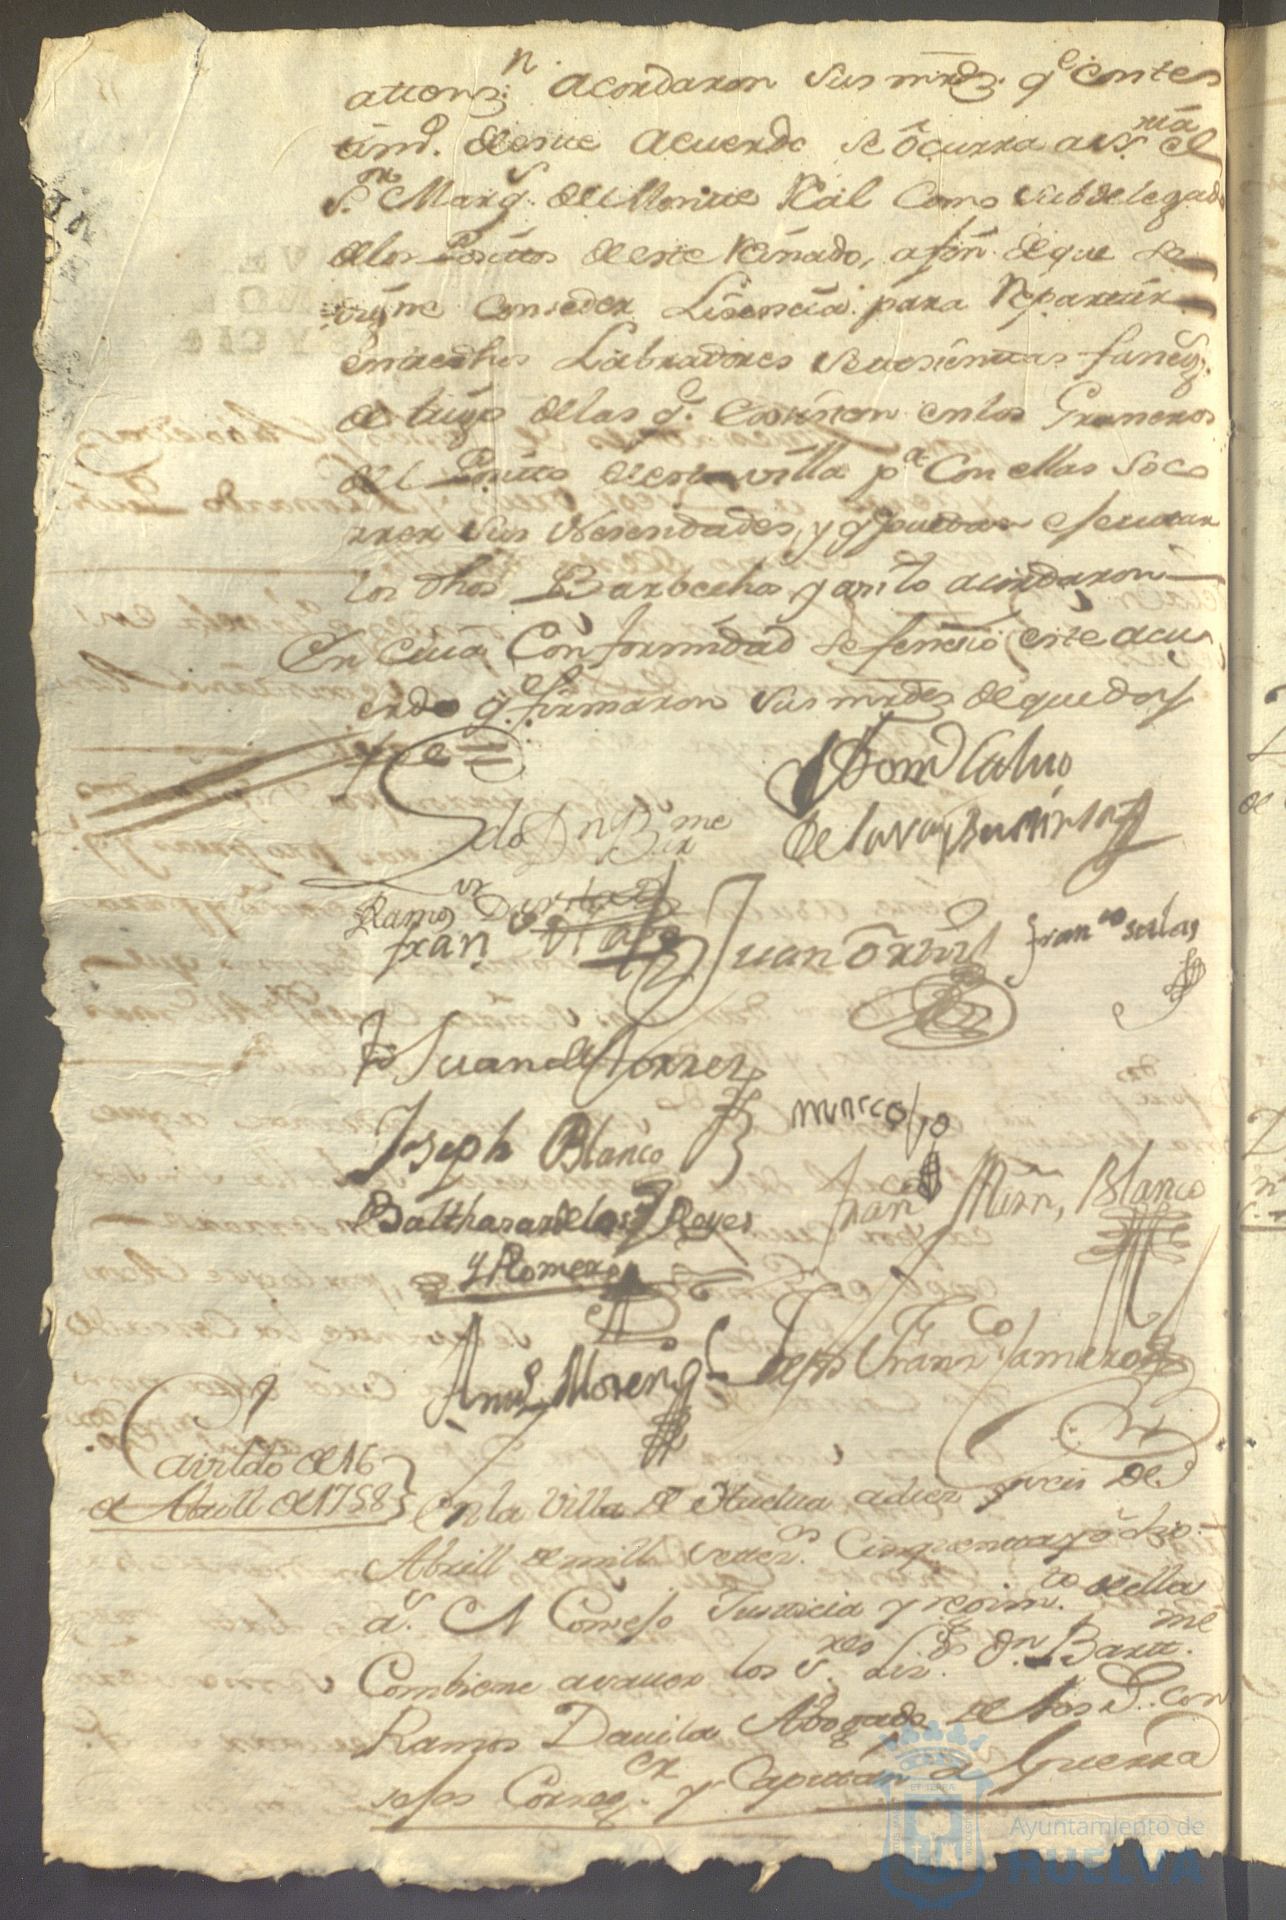 attonz.n acordaron sus mrds. qe con tes
timo. de este acuerdo se ôcurra a su sria el
Sor. Marqs. de Monte Real como subdelegado
de los Positos de este Reinado, a fin de que se
digne conseder Lisencia para Repartir
entre dhos Labradores fanegs.
de trigo de las qe. existen en los Graneros
del Posito de esta villa pa. con ellas soco
rrer sus Nesesidades, y qe puedan efectuar
los dhos Barbechos y asi lo acordaron
En cuia Conformidad se fenesio este acu
erdo qe. firmaron sus mrdes de que doy
fee =
Ldo Dn Bme
Ramos Davila
Domo Calvo
de la
Fran.
Juan Ortiz
Franco salas
Juan de Torres
Joseph Blanco
Marcos
Balthasar de los Reyes
y Romero
Franco Mrn, Blanco
Anto Moreno
Joseph Franco Camero
Cavildo de 16
de Abrill de 1758
En la Villa de Huelva a diez y seis de
Abrill de mill setesos. Cinquenta y ôcho
as. El Consejo Justicia y reximto. de ella
Combiene a saver los Sres Lisdo. Dn. Bartme.
Ramos Davila Abogado de los Rs. con
sejos Corregor. y Capitan a Guerra
Ayuntamiento de
HUELVA